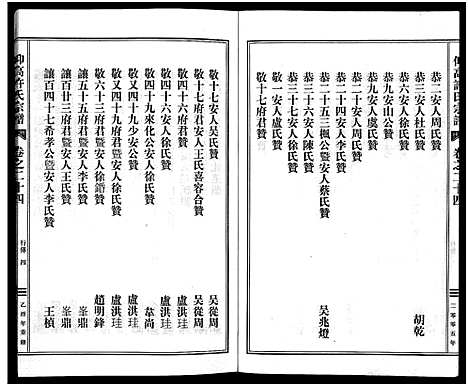 仰高許氏宗譜 卷之二十四
二〇〇五年
恭二安人周氏贊
恭三安人杜氏贊 胡乾
恭二十安人周氏贊
恭六安人盧氏贊
恭九安山公贊
恭二十四安人徐氏贊
恭二十五三楓公暨安人蔡氏贊 吴兆燈
恭三十六安人陳氏贊
敬一安人盧氏贊
敬十七府君贊
敬十七安人吴氏贊 吴從周
敬十七府君暨安人王氏喜容合贊 吴從周
敬四十六府君贊 盧洪珪
敬四十六安人徐氏贊 盧洪珪
敬四十九來化公安人徐氏贊 草尚
敬又四十九少安公贊 盧洪珪
敬又四十九府君暨安人徐氏贊 盧洪珪
敬六十三府君暨安人徐錯贊 趙明鋒
讓五十五府君暨安人李氏贊 峯鼎
讓百廿三府君暨安人王氏贊 峯鼎
讓百四十七希孝公暨安人李氏贊 王楨
仰高許氏宗譜 卷之二十四
行傳 四
乙酉年重修